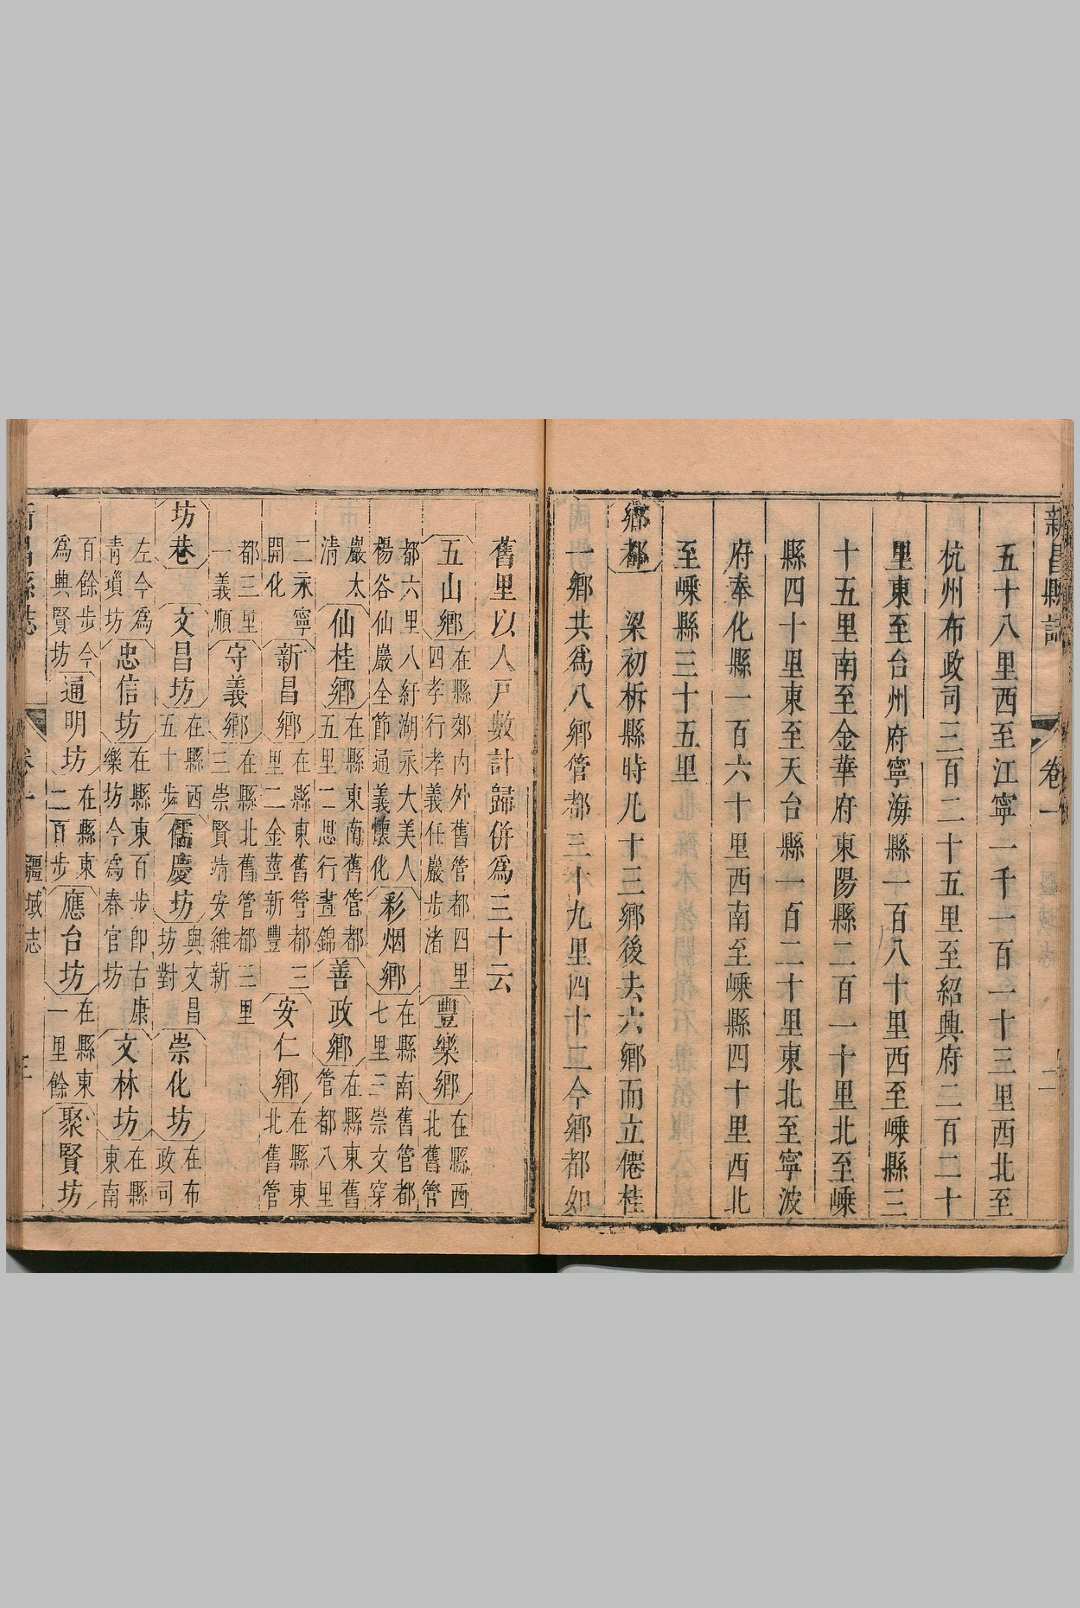 新昌縣誌 卷一 二
五十八里西至江寧一千一百一十三里西北至
杭州布政司三百二十五里至紹興府二百二十
里東至台州府寧海縣一百八十里西至嵊縣三
十五里南至金華府東陽縣二百一十里北至嵊
縣四十里東至天台縣一百二十里東北至寧波
府奉化縣一百六十里西南至嵊縣四十里西北
至嵊縣三十五里
鄉都 梁初析縣時凡十三鄉後去六鄉而立僊桂
一鄉共為八鄉管都三十九里四十二今鄉都如
舊里以人戶數計歸併為三十云
五山鄉 在縣郊內外舊管都四里四孝行孝義任巖步渚 豐樂鄉 在縣西北舊管
都六里八紆湖永大美人楊谷仙巖全節通義懷化 彩烟鄉 在縣南舊管都七里三崇文穿
巖太清 仙桂鄉 在縣東南舊管都五里二思行晝錦 善政鄉 在縣東舊管都八里
二永寧開化 新昌鄉 在縣東舊管都三里二金莖新豐 安仁鄉 在縣東北舊管
都三里一義順 守義鄉 在縣北舊管都三里三崇賢靖安維新
坊巷 文昌坊 在縣西五十步 儒慶坊 與文昌坊對 崇化坊 在布政司
左今為青瑣坊 忠信坊 在縣東百步即古康樂坊今為春官坊 文林坊 在縣東南
百餘步今為興賢坊 通明坊 在縣東二百步 應台坊 在縣東一里餘 聚賢坊
新昌縣志 卷一 疆域志 三